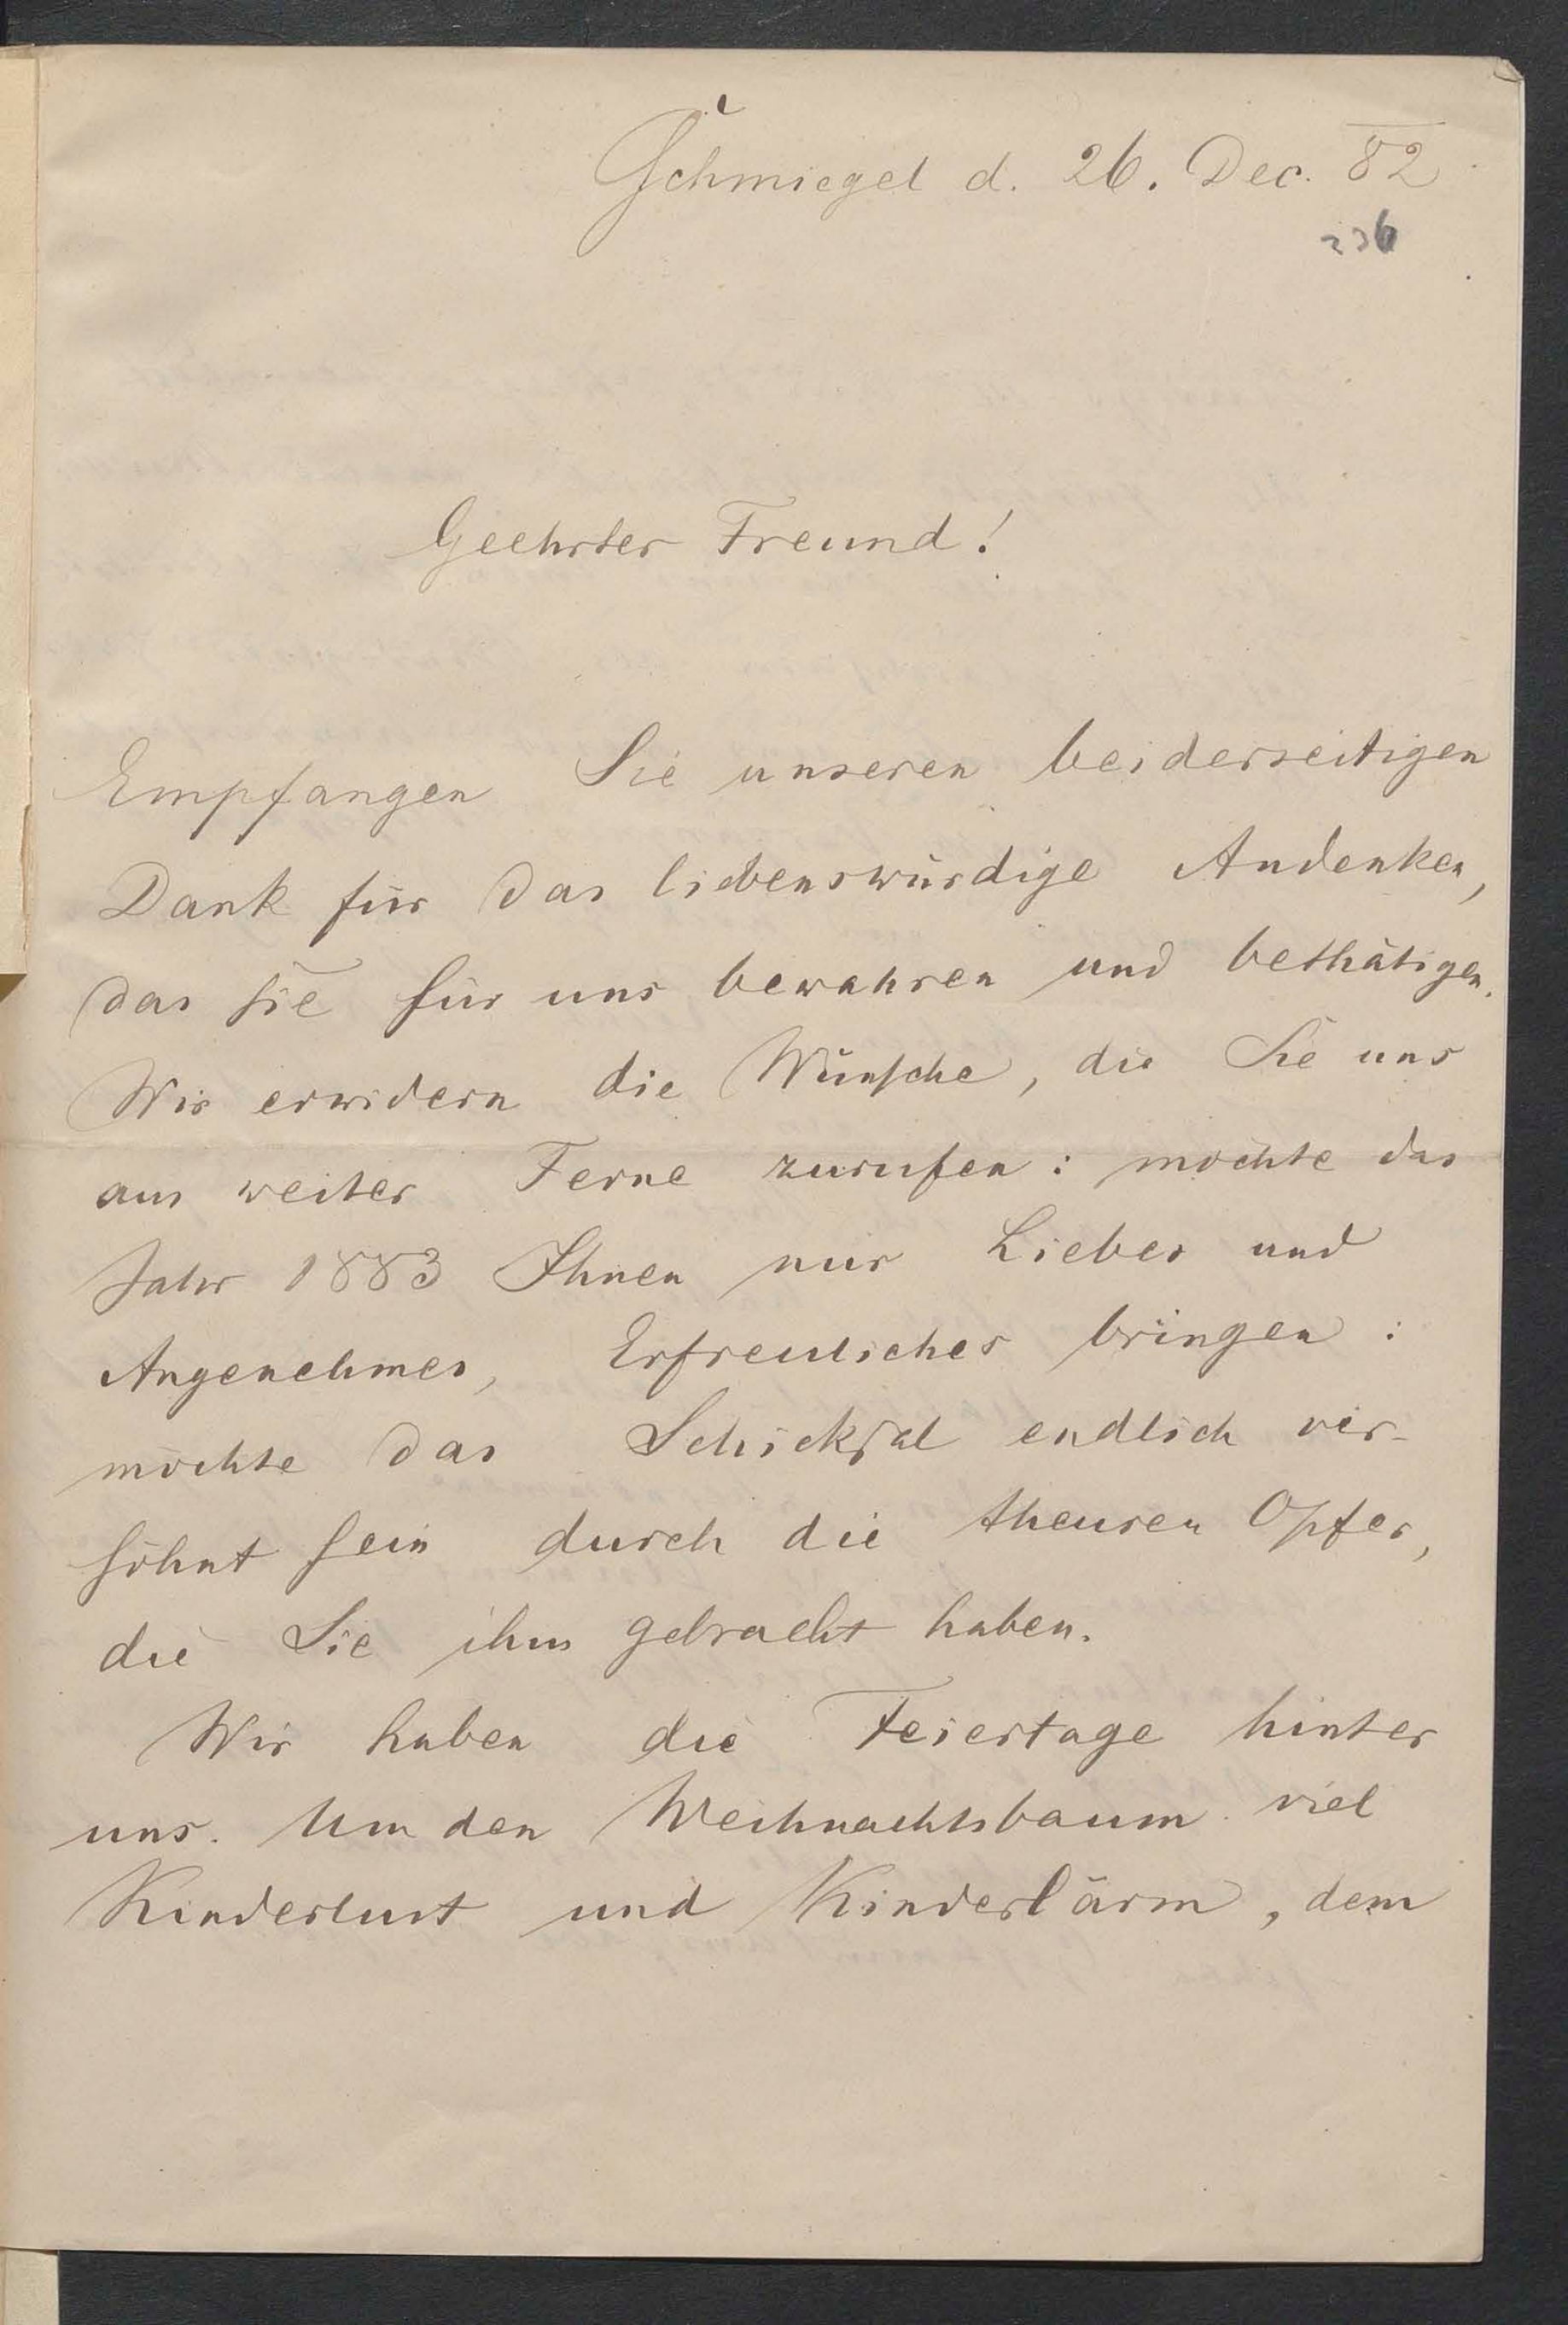 Schmiegel d. 26. Dec. 82
236
Geehrter Freund!
Empfangen Sie unseren beiderseitigen
Dank für das liebenswürdige Andenken,
das sie für uns bewahren und bethätigen.
Wir erwidern die Wünsche, die Sie uns
aus weiter Ferne zurufen: möchte das
Jahr 1883 Ihnen nur Liebes und
Angenehmes, Erfreuliches bringen:
möchte das Schicksal endlich ver-
söhnt sein durch die theuren Opfer,
die Sie ihm gebracht haben.
Wir haben die Feiertage hinter
uns. Um den Weihnachtsbaum viel
Kinderlust und Kinderlärm, dem